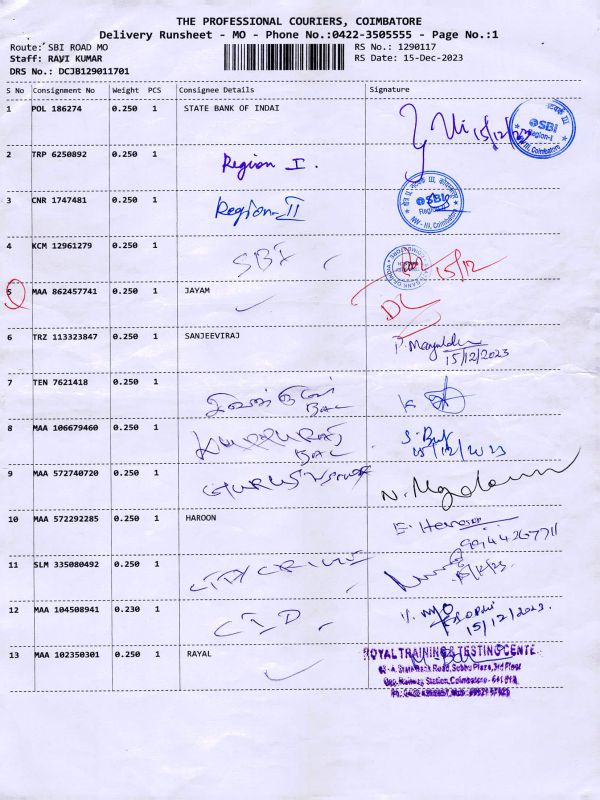 THE PROFESSIONAL COURIERS, COIMBATORE
Delivery Runsheet - MO - Phone No.:0422-3505555 - Page No.:1
Route: SBI ROAD MO
Staff: RAVI KUMAR
DRS No.: DCJB129011701
RS No.: 1290117
RS Date: 15-Dec-2023
S No Consignment No Weight PCS Consignee Details Signature
1 POL 186274 0.250 1 STATE BANK OF INDAI 15/12/23
SBI Region-I NW-III, Coimbatore
2 TRP 6250892 0.250 1 Region I.
3 CNR 1747481 0.250 1 Region-II
SBI NW-III, Coimbatore
4 KCM 12961279 0.250 1 SBI 15/12
5 MAA 862457741 0.250 1 JAYAM DL
6 TRZ 113323847 0.250 1 SANJEEVIRAJ
15/12/2023
7 TEN 7621418 0.250 1
8 MAA 106679460 0.250 1 15/12/2023
9 MAA 572740720 0.250 1
10 MAA 572292285 0.250 1 HAROON
11 SLM 335080492 0.250 1 CITY CRIME
12 MAA 104508941 0.230 1 CID
15/12/2023
13 MAA 102350301 0.250 1 RAYAL
ROYAL TRAINING & TESTING CENTE
State Bank Road, Subbu Plaza, 3rd Floor
Opp. Railway Station, Coimbatore - 641 018